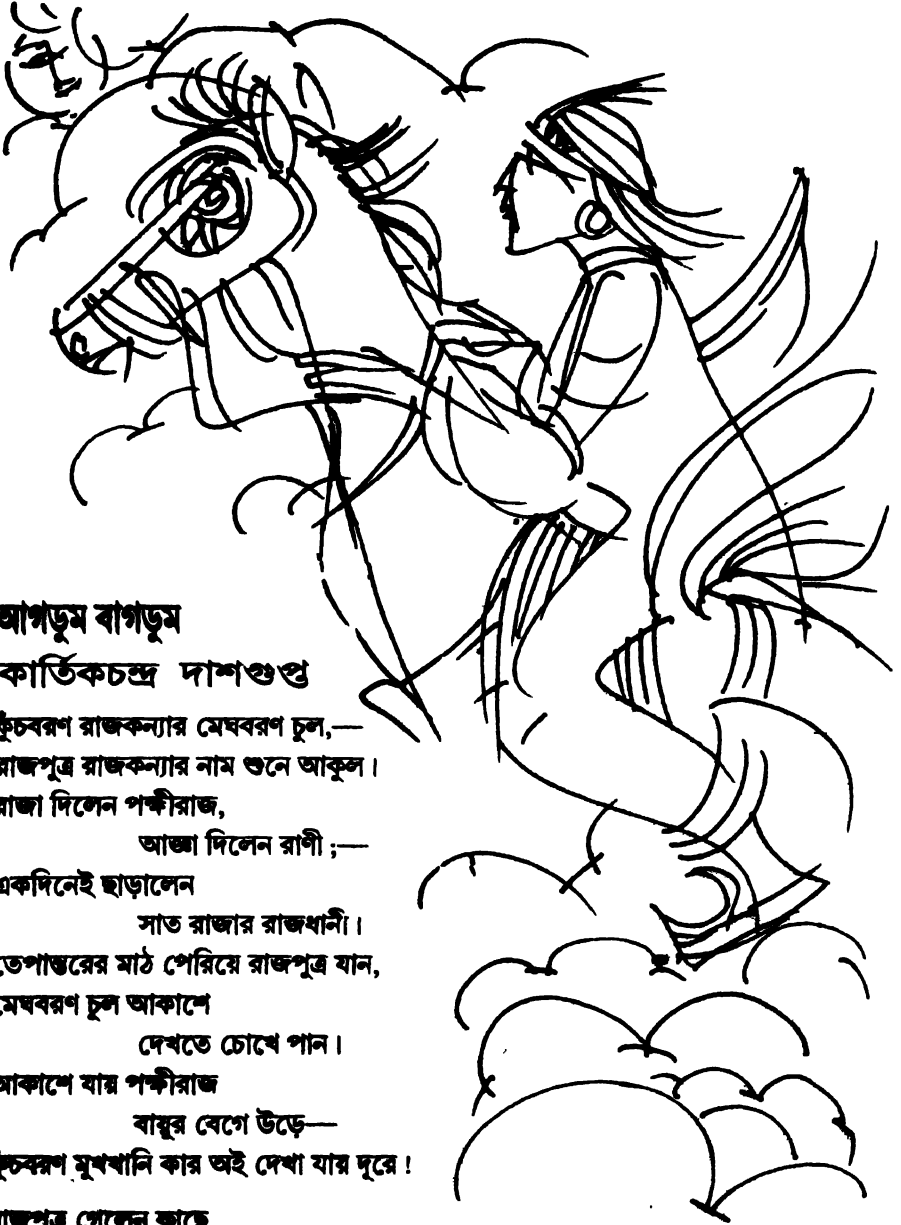 আগডুম বাগডুম
কার্তিকচন্দ্র দাশগুপ্ত
কুঁচবরণ রাজকন্যার মেঘবরণ চুল,—
রাজপুত্র রাজকন্যার নাম শুনে আকুল।
রাজা দিলেন পক্ষীরাজ,
আজ্ঞা দিলেন রাণী;—
একদিনেই ছাড়ালেন
সাত রাজার রাজধানী।
তেপান্তরের মাঠ পেরিয়ে রাজপুত্র যান,
মেঘবরণ চুল আকাশে
দেখতে চোখে পান।
আকাশে যায় পক্ষীরাজ
বায়ুর বেগে উড়ে—
কুঁচবরণ মুখখানি কার অই দেখা যায় দূরে!
রাজপুত্র গেলেন কাছে